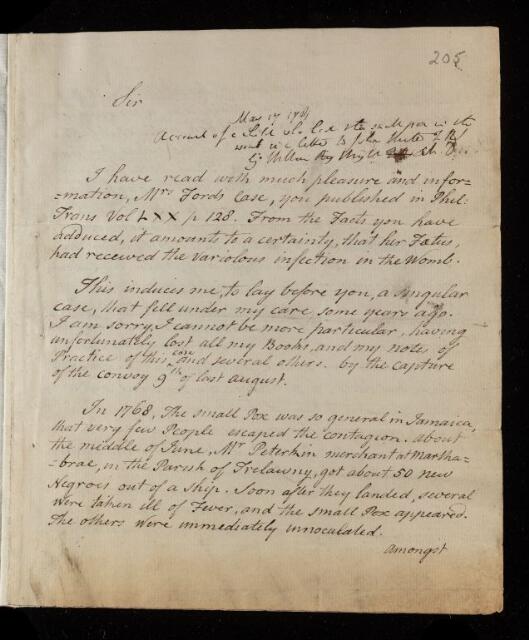 205
Sir
May 17 1781
Account of a Child who had the small pox in the
womb in a letter to John Hunter F R S
by William Wright
I have read with much pleasure and infor=
=mation, Mrs Fords Case, you published in Phil:
Trans Vol LXX p 128. From the Facts you have
adduced, it amounts to a certainty, that her Fœtus,
had received the Variolous infection in the Womb.
This induces me, to lay before you, a singular
case, that fell under my care, some years ago.
I am sorry, I cannot be more particular, having
unfortunately lost all my Books, and my notes of
Practice of this case and several others. by the capture
of the convoy 9th of last August.
In 1768, The small Pox was so general in Jamaica,
that very few People escaped the contagion. about
the middle of June, Mr Peterkin merchant at Martha=
=brae, in the Parish of Trelawny, got about 50 new
Negroes out of a ship. Soon after they landed, several
were taken ill of Fever, and the small Pox appeared.
The others were immediately innoculated.
Amongst